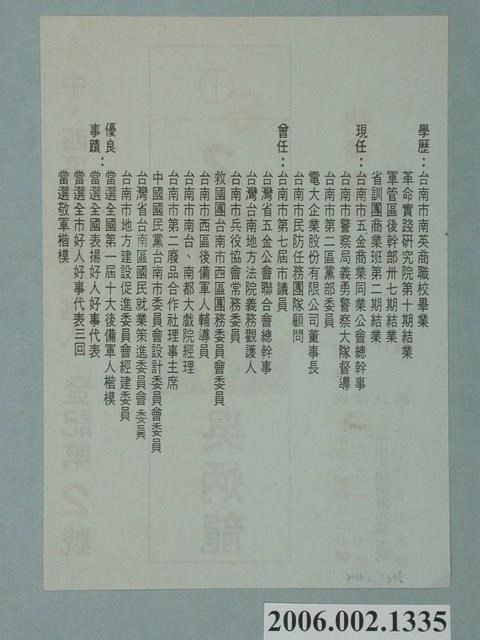 學歷：台南市南英商職校畢業
革命實踐研究院第十期結業
軍管區後幹部卅七期結業
省訓團商業班第二期結業
現任：台南市五金商業同業公會總幹事
台南市警察局義勇警察大隊督導
台南市第二區黨部委員
電大企業股份有限公司董事長
台南市民防任務團隊顧問
曾任：台南市第七届市議員
台灣省五金公會聯合會總幹事
台灣台南地方法院義務觀護人
台南市兵役協會常務委員
救國團台南市西區團務委員會委員
台南市西區後備軍人輔導員
台南市南台、南都大戲院經理
台南市第二廢品合作社理事主席
中國國民黨台南市委員會設計委員會委員
台灣省台南區國民就業策進委員會委員
台南市地方建設促進委員會經建委員
優良事蹟：當選全國第一屆十大後備軍人楷模
當選全國表揚好人好事代表
當選全市好人好事代表三回
當選敬軍楷模
中、西
登記第2號
吳炳龍
2006.002.1335